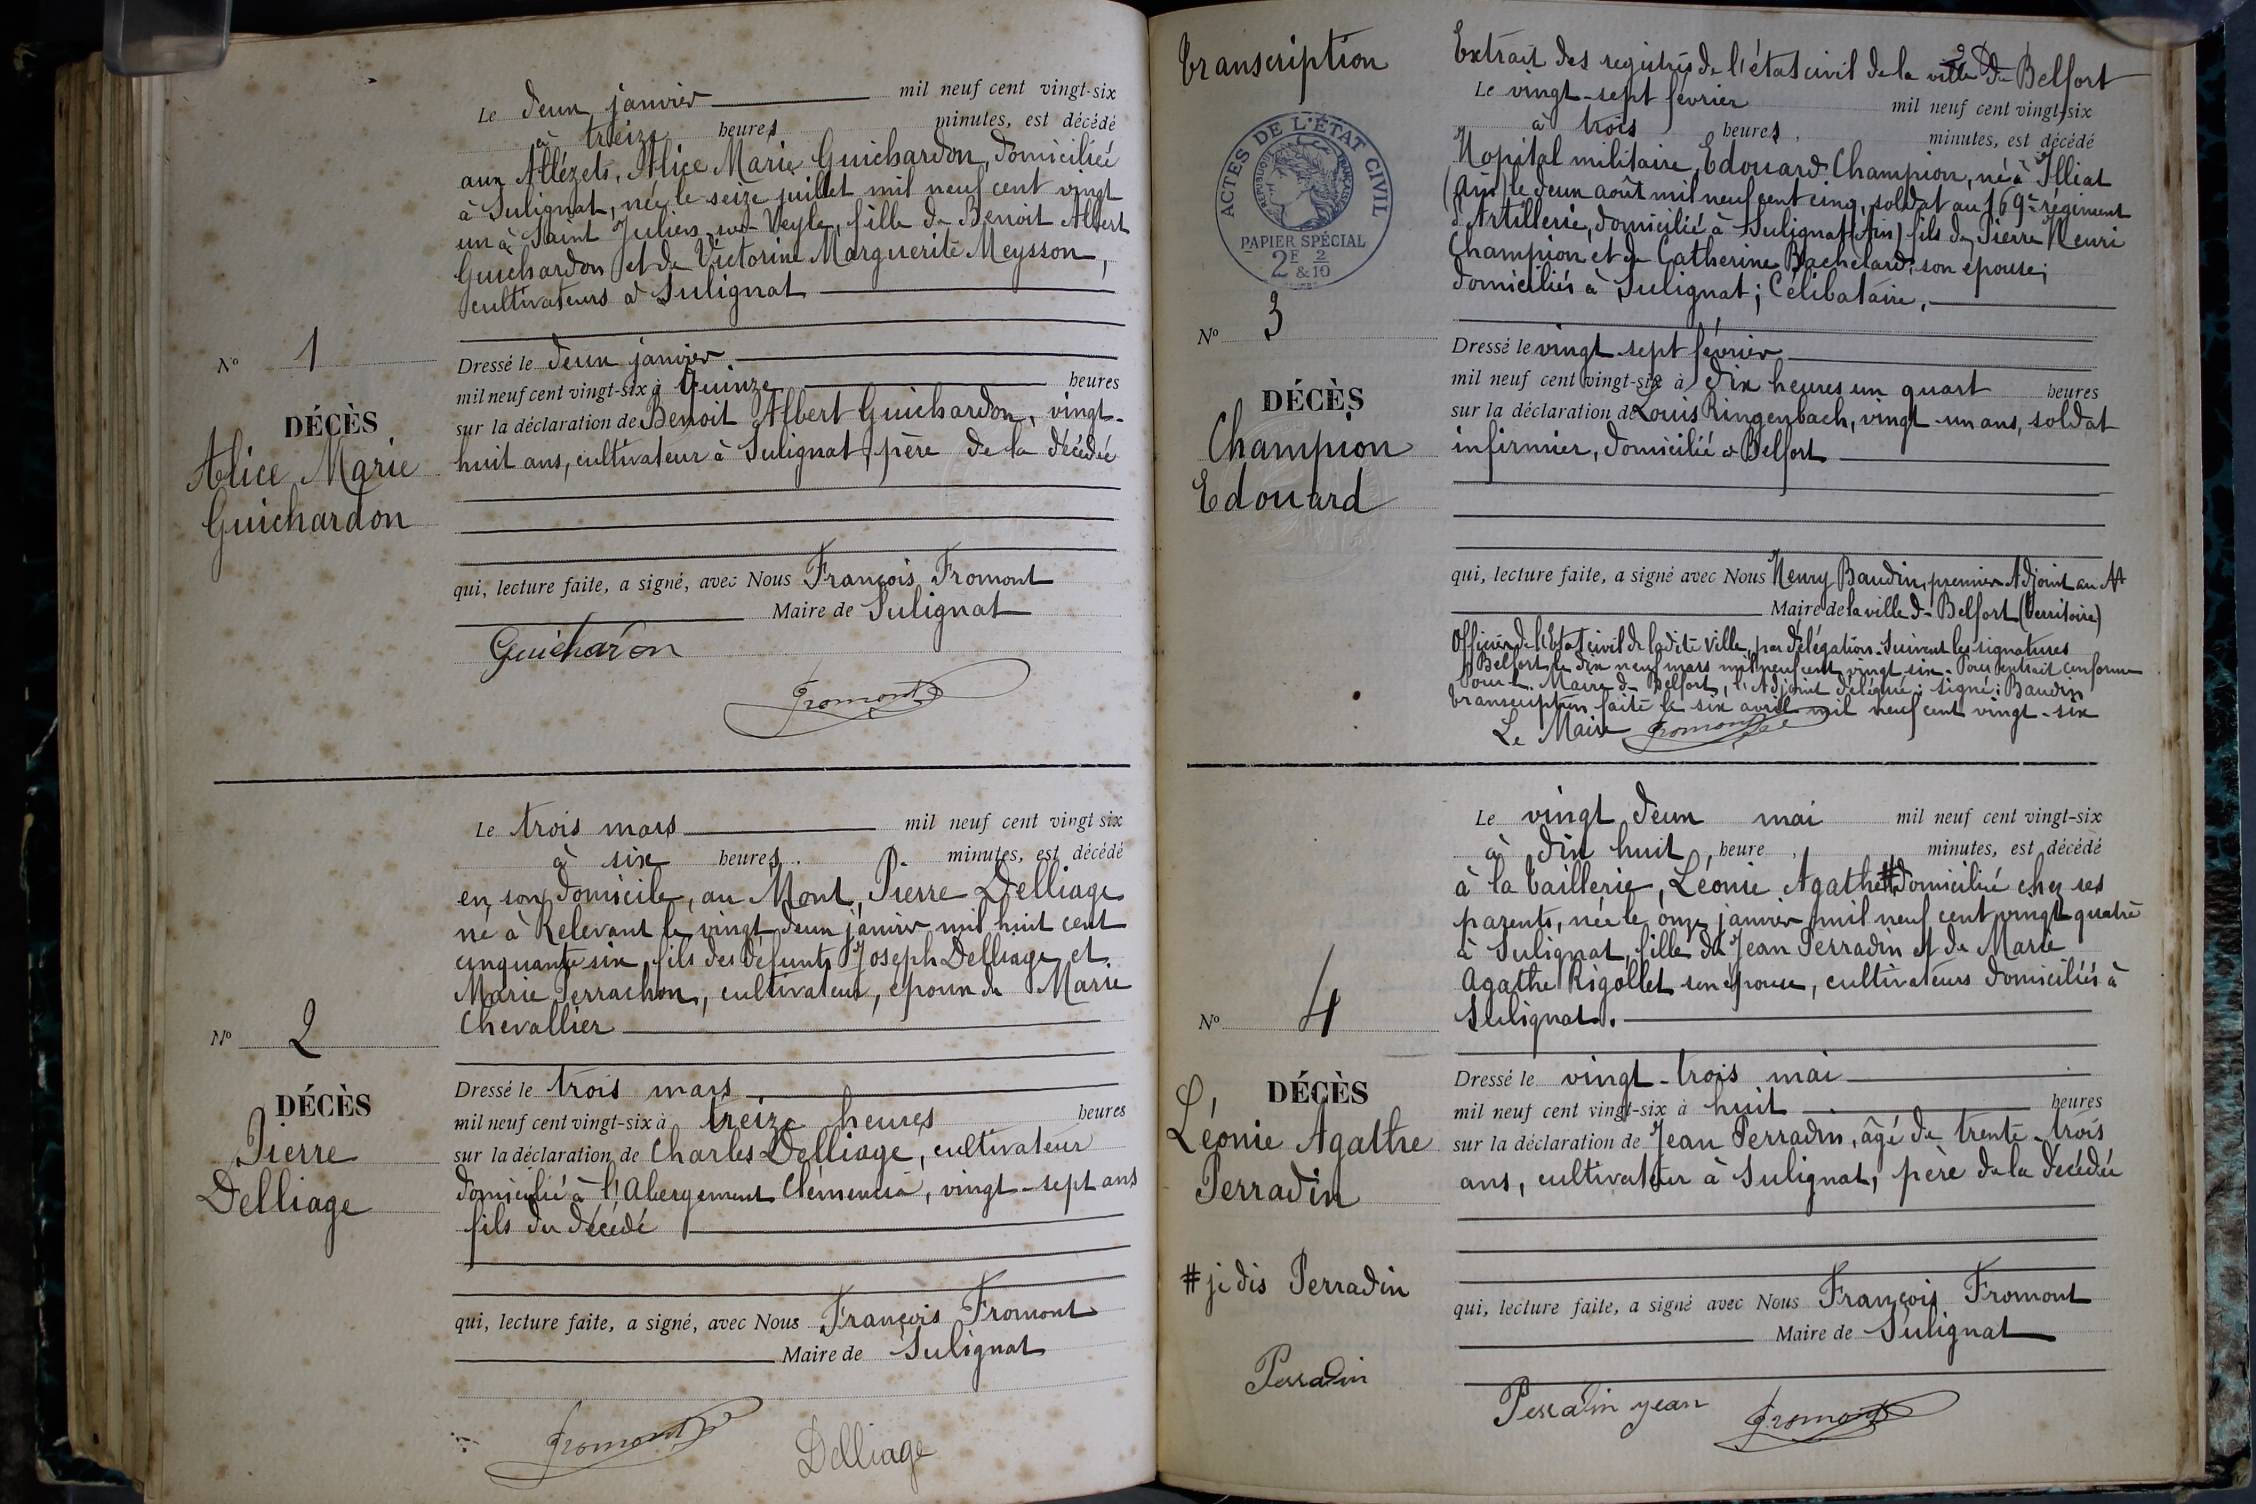 Le deux janvier mil neuf cent vingt-six
à treize heures minutes, est décédé
aux Allézets, Alice Marie Guichardon, domiciliée
à Sulignat, née le seize juillet mil neuf cent vingt
un à Saint Julien sur Veyle, fille de Benoit Albert
Guichardon et de Victorine Marguerite Meysson,
cultivateurs à Sulignat
N° 1
DÉCÈS
Alice Marie
Guichardon
Dressé le deux janvier
mil neuf cent vingt-six à Quinze heures
sur la déclaration de Benoit Albert Guichardon, vingt-
huit ans, cultivateur à Sulignat, père de la décédée
qui, lecture faite, a signé, avec Nous François Fromont
Maire de Sulignat
Guichardon
Fromont
Le trois mars mil neuf cent vingt six
à six heures. minutes, est décédé
en son domicile, au Mont, Pierre Delliage
né à Relevant le vingt deux janvier mil huit cent
cinquante six, fils des défunts Joseph Delliage et
Marie Perrachon, cultivateur, époux de Marie
Chevallier
N° 2
DÉCÈS
Pierre
Delliage
Dressé le trois mars
mil neuf cent vingt-six à treize heures heures
sur la déclaration de Charles Delliage, cultivateur
domicilié à l'Abergement Clémencia, vingt-sept ans
fils du décédé
qui, lecture faite, a signé, avec Nous François Fromont
Maire de Sulignat
Fromont
Delliage
Transcription
ACTES DE L'ÉTAT CIVIL
RÉPUBLIQUE FRANÇAISE
PAPIER SPÉCIAL
2F 2
&10
Extrait des registres de l'état civil de la ville de Belfort
Le vingt-sept février mil neuf cent vingt-six
à trois heures. minutes, est décédé
Hopital militaire, Edouard Champion, né à Illiat
(Ain) le deux août mil neuf cent cinq, soldat au 169e régiment
d'Artillerie, domicilié à Sulignat (Ain) fils de Pierre Henri
Champion et de Catherine Bachelard, son épouse;
domiciliés à Sulignat; Célibataire.
N° 3
DÉCÈS
Champion
Edouard
Dressé le vingt sept février
mil neuf cent vingt-six à dix heures un quart heures
sur la déclaration de Louis Ringenbach, vingt-un ans, soldat
infirmier, domicilié à Belfort
qui, lecture faite, a signé avec Nous Henry Baudin, premier Adjoint au
Maire de la ville de Belfort (Territoire)
Officier de l'Etat civil de ladite ville, par délégation. Suivent les signatures
Belfort le dix neuf mars mil neuf cent vingt six. Pour extrait conforme
Pour le Maire de Belfort, l'Adjoint délégué: signé: Baudin
Transcription faite le six avril mil neuf cent vingt-six
Le Maire Fromont
Le vingt deux mai mil neuf cent vingt-six
à dix huit heure minutes, est décédé
à la Taillerie, Léonie Agathe # domiciliée chez ses
parents, née le onze janvier mil neuf cent vingt quatre
à Sulignat, fille de Jean Perradin et de Marie
Agathe Rigollet son épouse, cultivateurs domiciliés à
Sulignat.
N° 4
DÉCÈS
Léonie Agathe
Perradin
# je dis Perradin
Perradin
Dressé le vingt-trois mai
mil neuf cent vingt-six à huit heures
sur la déclaration de Jean Perradin, âgé de trente-trois
ans, cultivateur à Sulignat, père de la décédée
qui, lecture faite, a signé avec Nous François Fromont
Maire de Sulignat
Perradin jean
Fromont